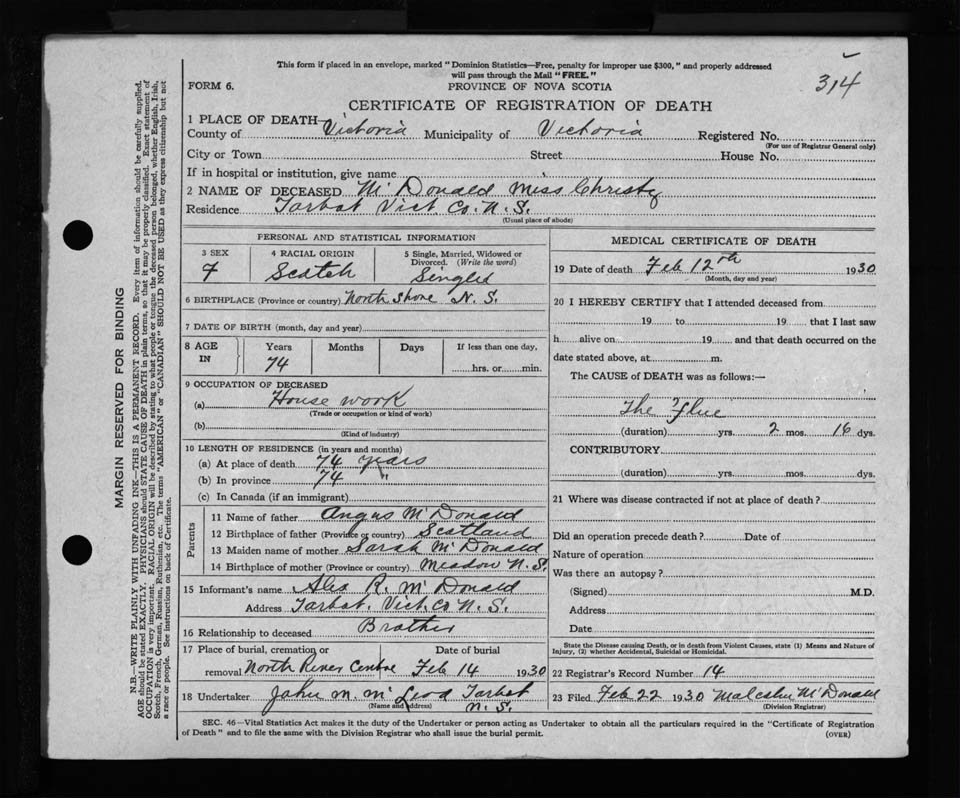 This form if placed in an envelope, marked "Dominion Statistics—Free, penalty for improper use $300," and properly addressed
will pass through the Mail "FREE."
314
FORM 6.
PROVINCE OF NOVA SCOTIA
CERTIFICATE OF REGISTRATION OF DEATH
1 PLACE OF DEATH—
County of Victoria Municipality of Victoria Registered No.
(For use of Registrar General only)
City or Town Street House No.
If in hospital or institution, give name
2 NAME OF DECEASED McDonald Miss Christy
Residence Tarbot Vict. Co. N. S.
(Usual place of abode)
PERSONAL AND STATISTICAL INFORMATION
3 SEX
F
4 RACIAL ORIGIN
Scotch
5 Single, Married, Widowed or
Divorced. (Write the word)
Single
6 BIRTHPLACE (Province or country) North Shore N. S.
7 DATE OF BIRTH (month, day and year)
8 AGE
IN
Years
74
Months
Days
If less than one day,
hrs. or min.
9 OCCUPATION OF DECEASED
(a) House work
(Trade or occupation or kind of work)
(b)
(Kind of industry)
10 LENGTH OF RESIDENCE (in years and months)
(a) At place of death 74 years
(b) In province 74 "
(c) In Canada (if an immigrant)
Parents
11 Name of father Angus McDonald
12 Birthplace of father (Province or country) Scotland
13 Maiden name of mother Sarah McDonald
14 Birthplace of mother (Province or country) Meadow N. S.
15 Informant's name Alex R. McDonald
Address Tarbot, Vict. Co N. S.
16 Relationship to deceased Brother
17 Place of burial, cremation or Date of burial
removal North River Centre Feb 14 1930
18 Undertaker John M. McLeod Tarbot
(Name and address) N. S.
MEDICAL CERTIFICATE OF DEATH
19 Date of death Feb 12th 1930
(Month, day and year)
20 I HEREBY CERTIFY that I attended deceased from
19 to 19 that I last saw
h alive on 19 and that death occurred on the
date stated above, at m.
The CAUSE of DEATH was as follows:—
The Flue
(duration) yrs. 2 mos. 16 dys.
CONTRIBUTORY
(duration) yrs. mos. dys.
21 Where was disease contracted if not at place of death?
Did an operation precede death? Date of
Nature of operation
Was there an autopsy?
(Signed) M.D.
Address
Date
State the Disease causing Death, or in death from Violent Causes, state (1) Means and Nature of
Injury, (2) whether Accidental, Suicidal or Homicidal.
22 Registrar's Record Number 14
23 Filed Feb 22 1930 Malcolm McDonald
(Division Registrar)
SEC. 46—Vital Statistics Act makes it the duty of the Undertaker or person acting as Undertaker to obtain all the particulars required in the "Certificate of Registration
of Death" and to file the same with the Division Registrar who shall issue the burial permit.
(OVER)
MARGIN RESERVED FOR BINDING
N.B.—WRITE PLAINLY WITH UNFADING INK—THIS IS A PERMANENT RECORD. Every item of information should be carefully supplied.
AGE should be stated EXACTLY. PHYSICIANS should STATE CAUSE OF DEATH in plain terms, so that it may be properly classified. Exact statement of
OCCUPATION is very important. RACIAL ORIGIN will be described by stating to what people or tongue the deceased person belonged, whether English, Irish,
Scotch, French, German, Russian, Ruthenian, etc. The terms "AMERICAN" or "CANADIAN" SHOULD NOT BE USED as they express citizenship but not
a race or people. See instructions on back of Certificate.